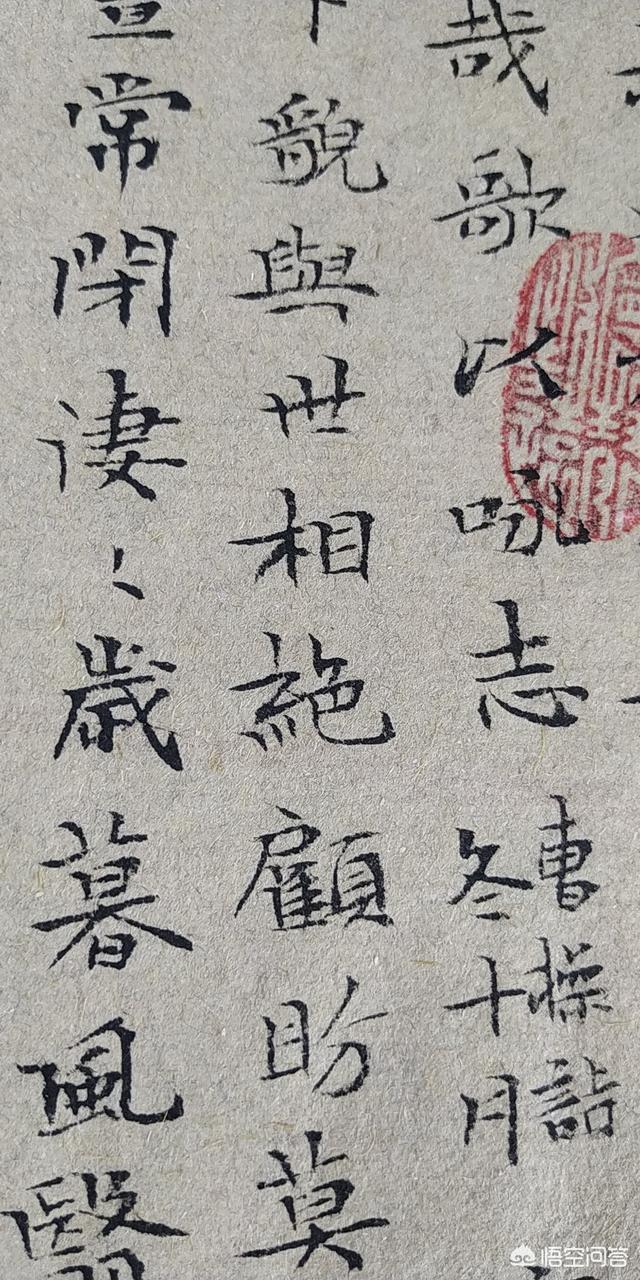 哉歌以咏志
曹操詩
冬十月
貌與世相絶顧盼莫
常閉凄〻歲暮風翳
悟空问答